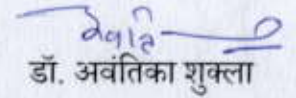 डॉ. अवंतिका शुक्ला